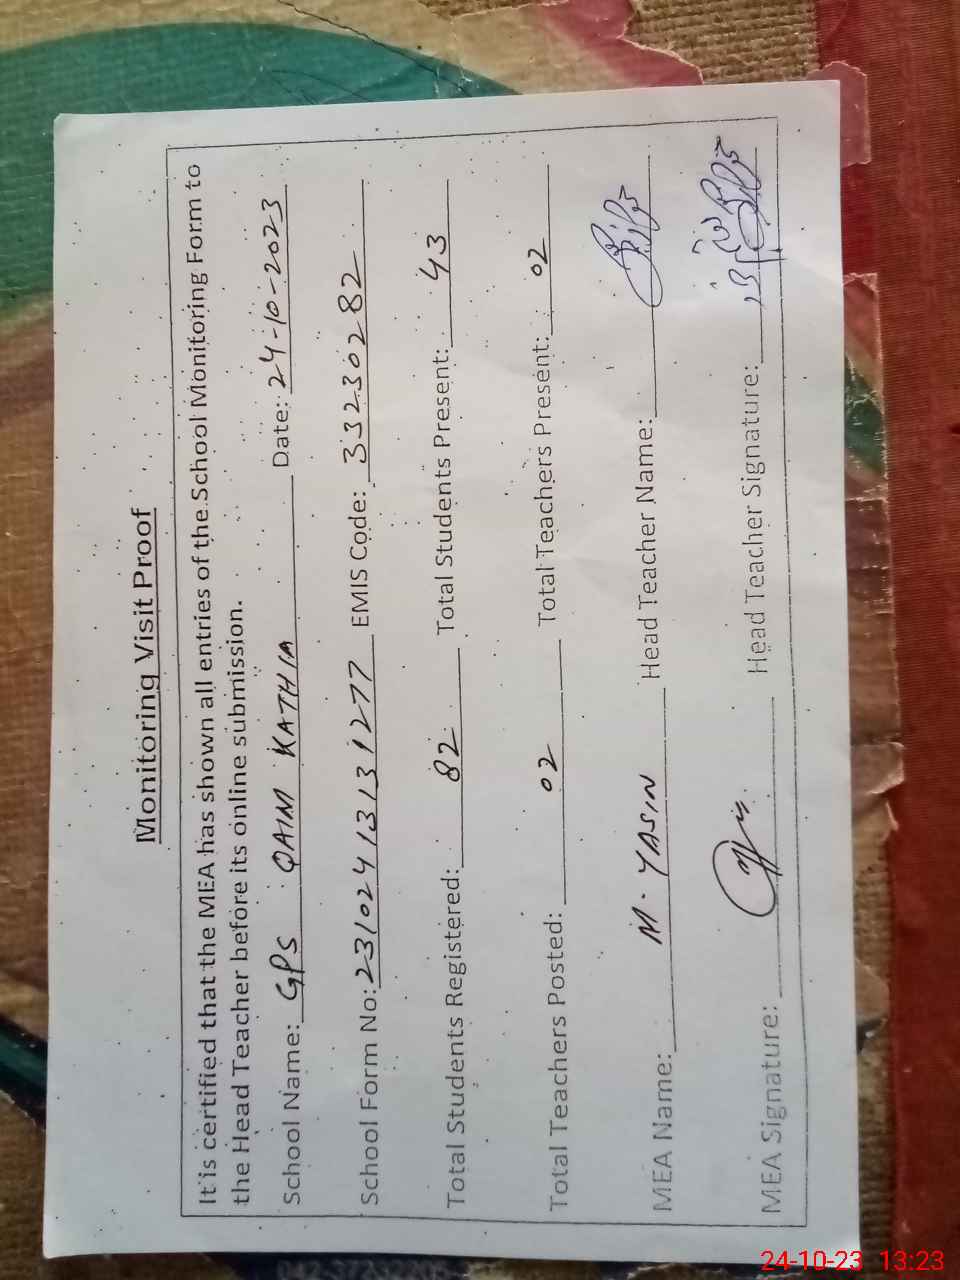 Monitoring Visit Proof
It is certified that the MEA has shown all entries of the School Monitoring Form to
the Head Teacher before its online submission.
School Name: GPS QAIM KATHIA Date: 24-10-2023
School Form No: 23102413131277 EMIS Code: 33230282
Total Students Registered: 82 Total Students Present: 43
Total Teachers Posted: 02 Total Teachers Present: 02
MEA Name: M. YASIN Head Teacher Name:
MEA Signature: Head Teacher Signature:
24-10-23 13:23